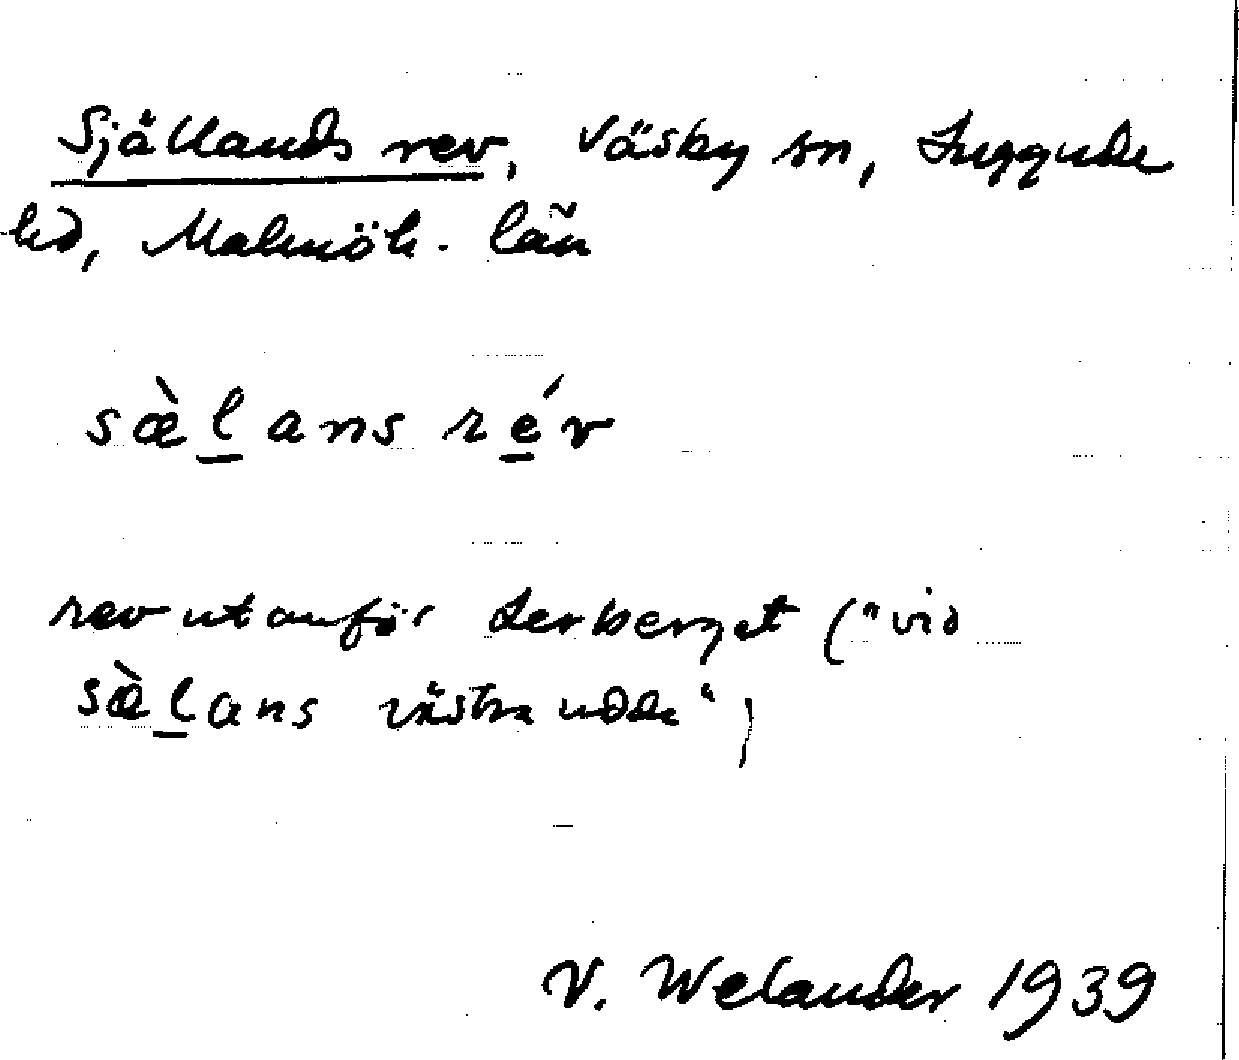 Själlands rev, Väsby sn, Luggude
hd, Malmöh. län
sæ̀l̲ans ré̲v
rev utanför Lerberget ("vid
sæ̀l̲ans västra udde")
V. Welander 1939